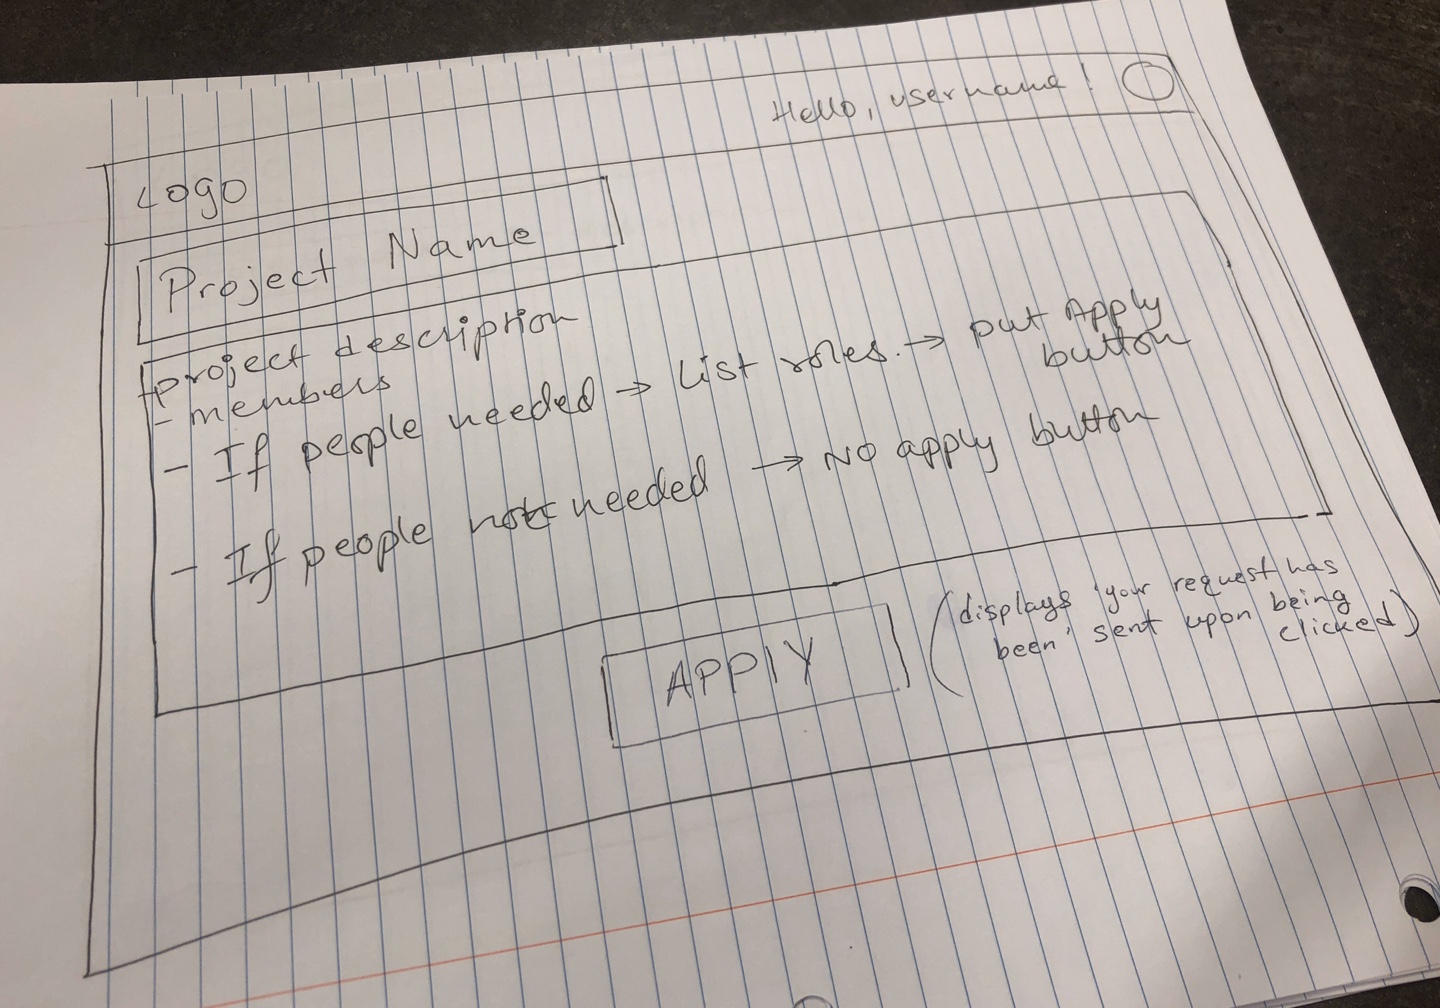 Hello, username!
Logo
Project Name
project description
- members
- If people needed → List roles. → put Apply button
- If people not needed → NO apply button
APPLY
(displays 'your request has
been' sent upon being
clicked)